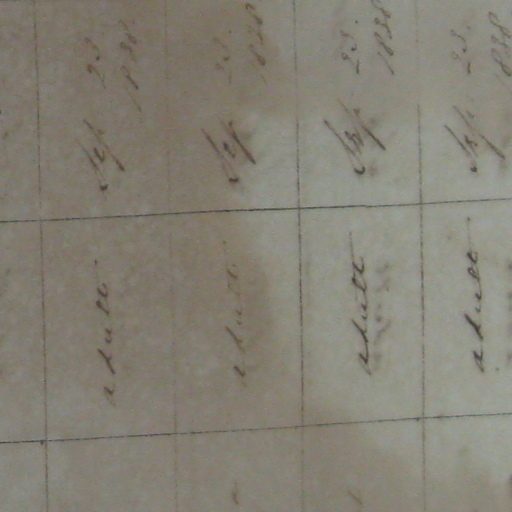 adult Sep 23
1838
adult Sep 23.
1838
adult Sep 23.
1838
adult Sep. 23.
1838